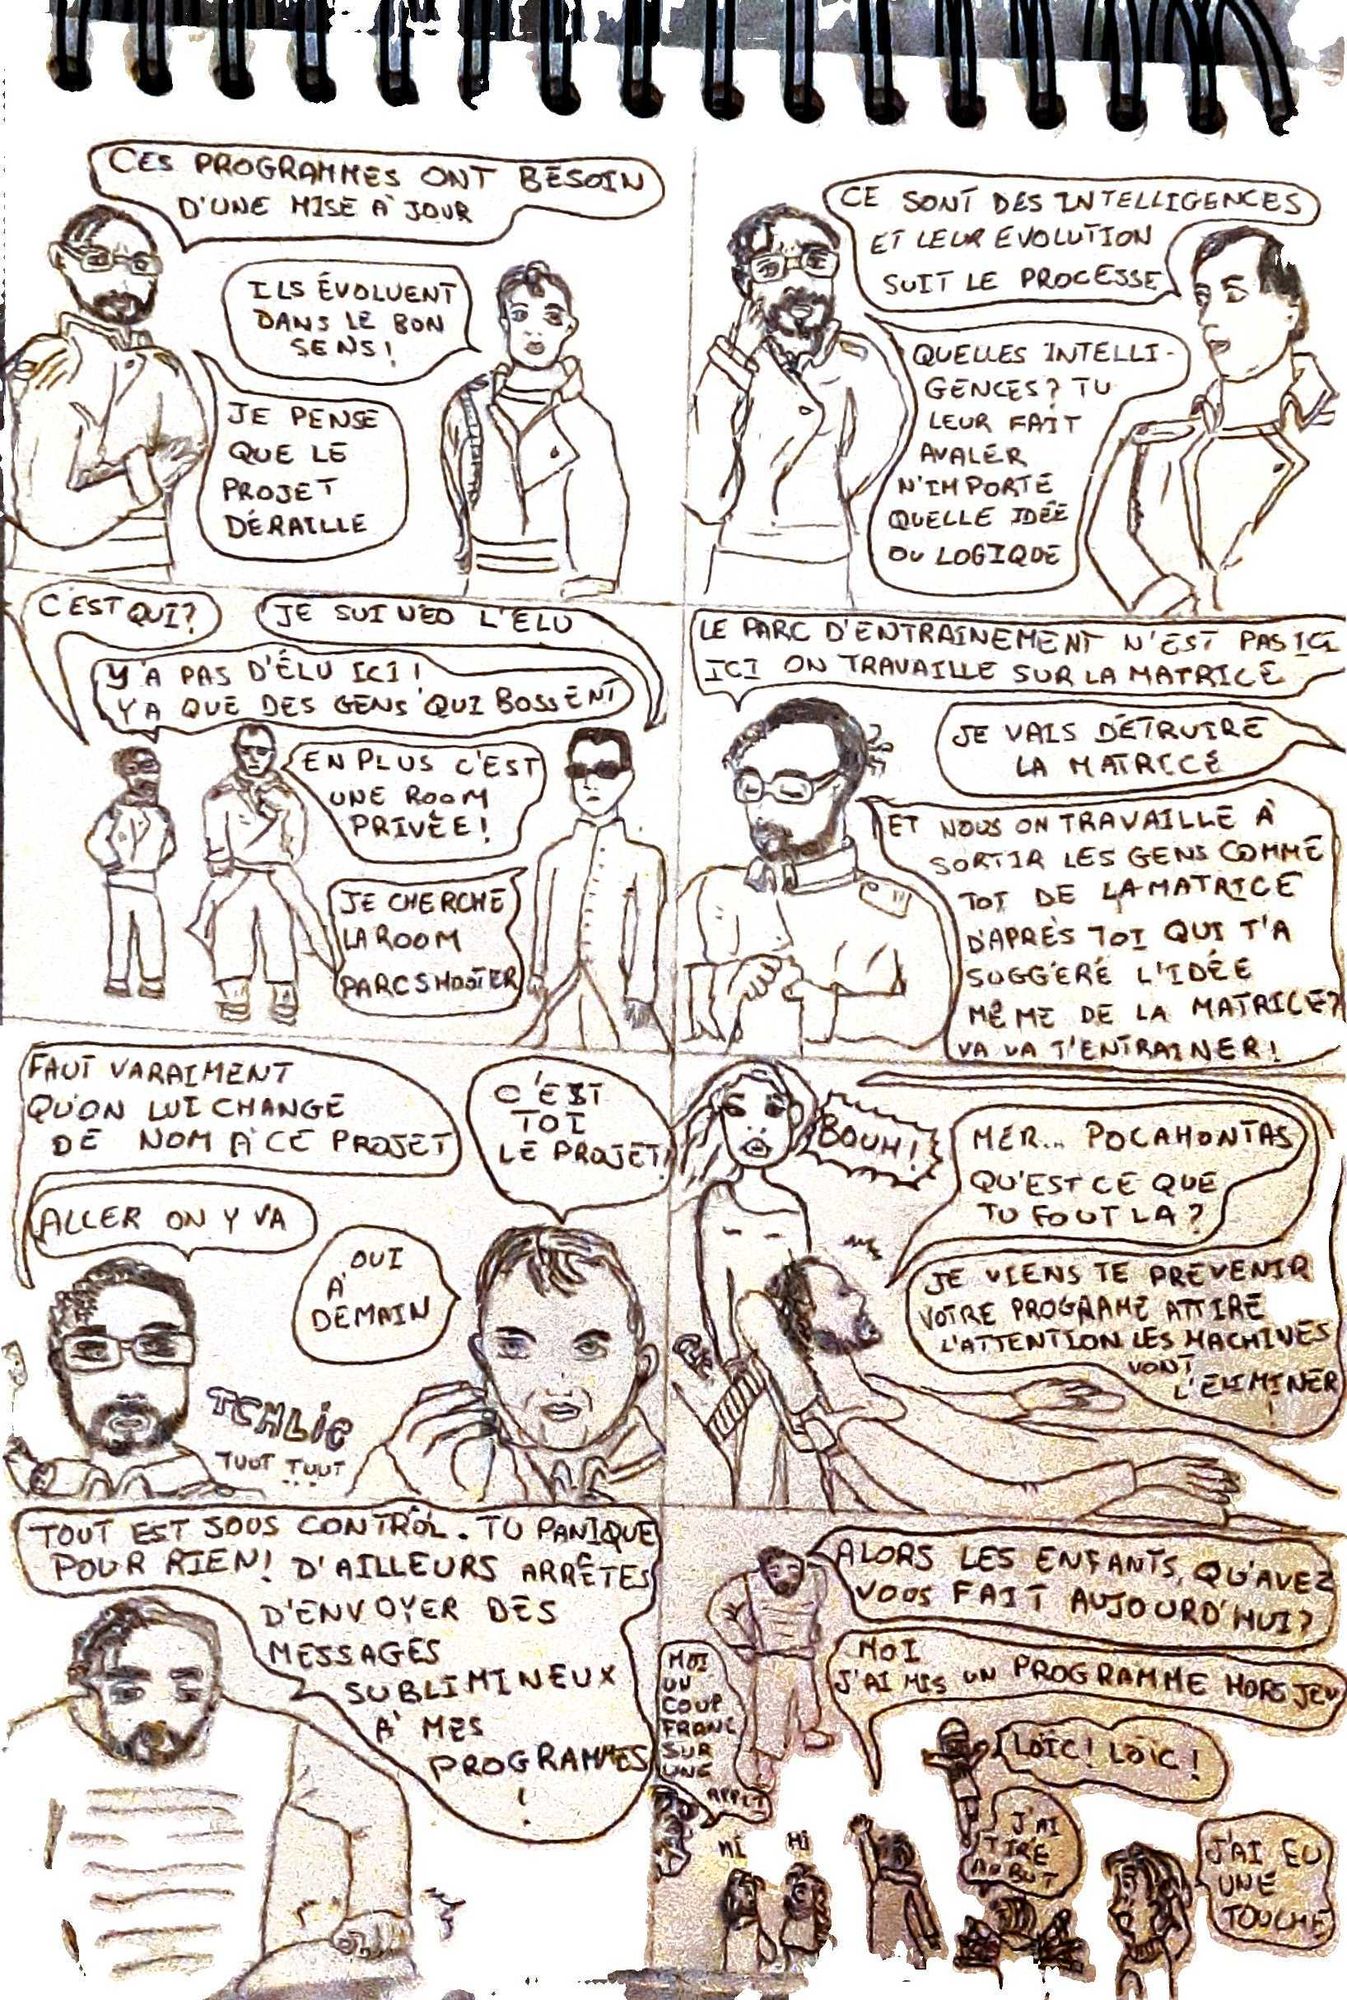 CES PROGRAMMES ONT BESOIN
D'UNE MISE À JOUR
ILS ÉVOLUENT
DANS LE BON
SENS!
JE PENSE
QUE LE
PROJET
DÉRAILLE
CE SONT DES INTELLIGENCES
ET LEUR EVOLUTION
SUIT LE PROCESSE
QUELLES INTELLI-
GENCES? TU
LEUR FAIT
AVALER
N'IMPORTE
QUELLE IDÉE
OU LOGIQUE
C'EST QUI?
JE SUI NEO L'ELU
Y'A PAS D'ÉLU ICI!
Y A QUE DES GENS QUI BOSSENT
EN PLUS C'EST
UNE ROOM
PRIVÉE!
JE CHERCHE
LA ROOM
PARCSHOOTER
LE PARC D'ENTRAINEMENT N'EST PAS ICI
ICI ON TRAVAILLE SUR LA MATRICE
JE VAIS DÉTRUIRE
LA MATRICE
ET NOUS ON TRAVAILLE À
SORTIR LES GENS COMME
TOI DE LA MATRICE
D'APRÈS TOI QUI T'A
SUGGÉRÉ L'IDÉE
MÊME DE LA MATRICE?
VA VA T'ENTRAINER!
FAUT VARAIMENT
QU'ON LUI CHANGE
DE NOM À CE PROJET
C'EST
TOI
LE PROJET!
ALLER ON Y VA
OUI
À
DEMAIN
TCHLIC
TUUT TUUT
...
BOUH!
MER... POCAHONTAS
QU'EST CE QUE
TU FOUT LA?
JE VIENS TE PRÉVENIR
VOTRE PROGRAME ATTIRE
L'ATTENTION LES MACHINES
VONT
L'ELIMINER
!
TOUT EST SOUS CONTRÔL. TU PANIQUE
POUR RIEN! D'AILLEURS ARRÊTES
D'ENVOYER DES
MESSAGES
SUBLIMINEUX
À MES
PROGRAMMES
!
ALORS LES ENFANTS, QU'AVEZ
VOUS FAIT AUJOURD'HUI?
MOI
J'AI MIS UN PROGRAMME HORS JEU
MOI
UN
COUP
FRANC
SUR
UNE
APPLI
LOÏC! LOÏC!
J'AI
TIRÉ
AU BUT
HI
HI
J'AI EU
UNE
TOUCHE